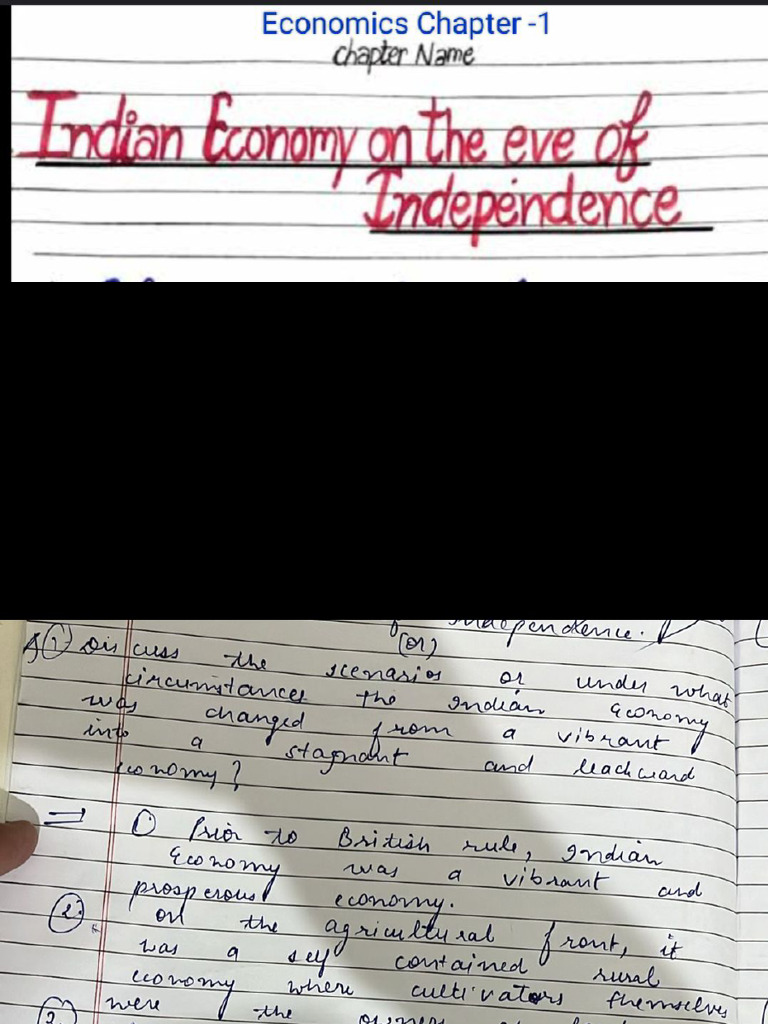 Economics Chapter -1
Chapter Name
Indian Economy on the eve of
Independence
Independence.
(or)
Q(1) Discuss the scenarios or under what
circumstances the Indian Economy
was changed from a vibrant
into a stagnant and backward
economy?
⇒ (1) Prior to British rule, Indian
Economy was a vibrant and
prosperous economy.
(2) on the agricultural front, it
was a self contained rural
economy where cultivators themselves
were the owners